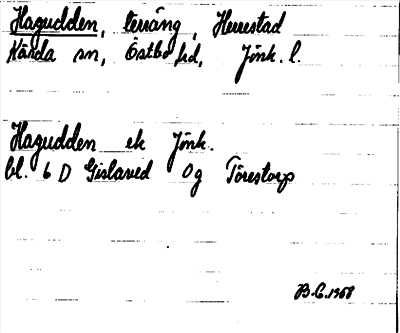 Hagudden, terräng, Herrestad
Kärda sn, Östbo hd, Jönk. l.
Hagudden ek Jönk.
bl. 6 D Gislaved Og Törestorp
B.C. 1968